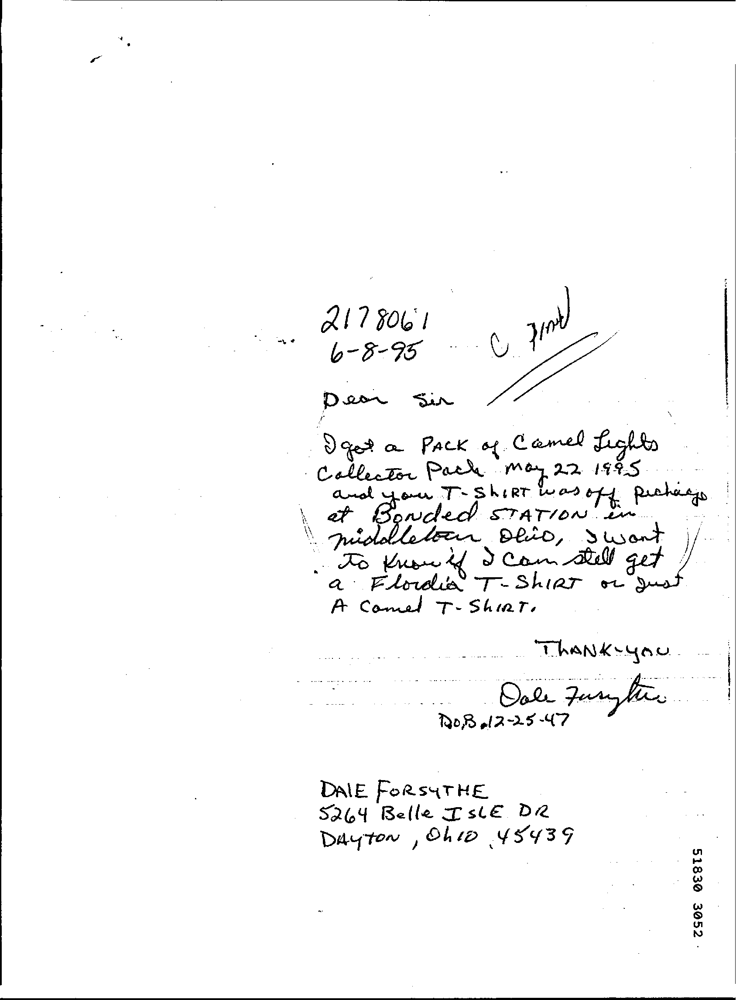 2178061
6-8-95
Dear Sir
I got a PACK of Camel Lights
Collector Pack May 22 1995
and your T-SHIRT was off package
at Bonded STATION in
middletown Ohio, I want
to Know if I can still get
a Flordia T-SHIRT or Just
A Camel T-SHIRT.
THANK-YOU
Dale Forsythe
D.O.B. 12-25-47
DALE FORSYTHE
5264 Belle ISLE DR
DAYTON, Ohio, 45439
51830 3052